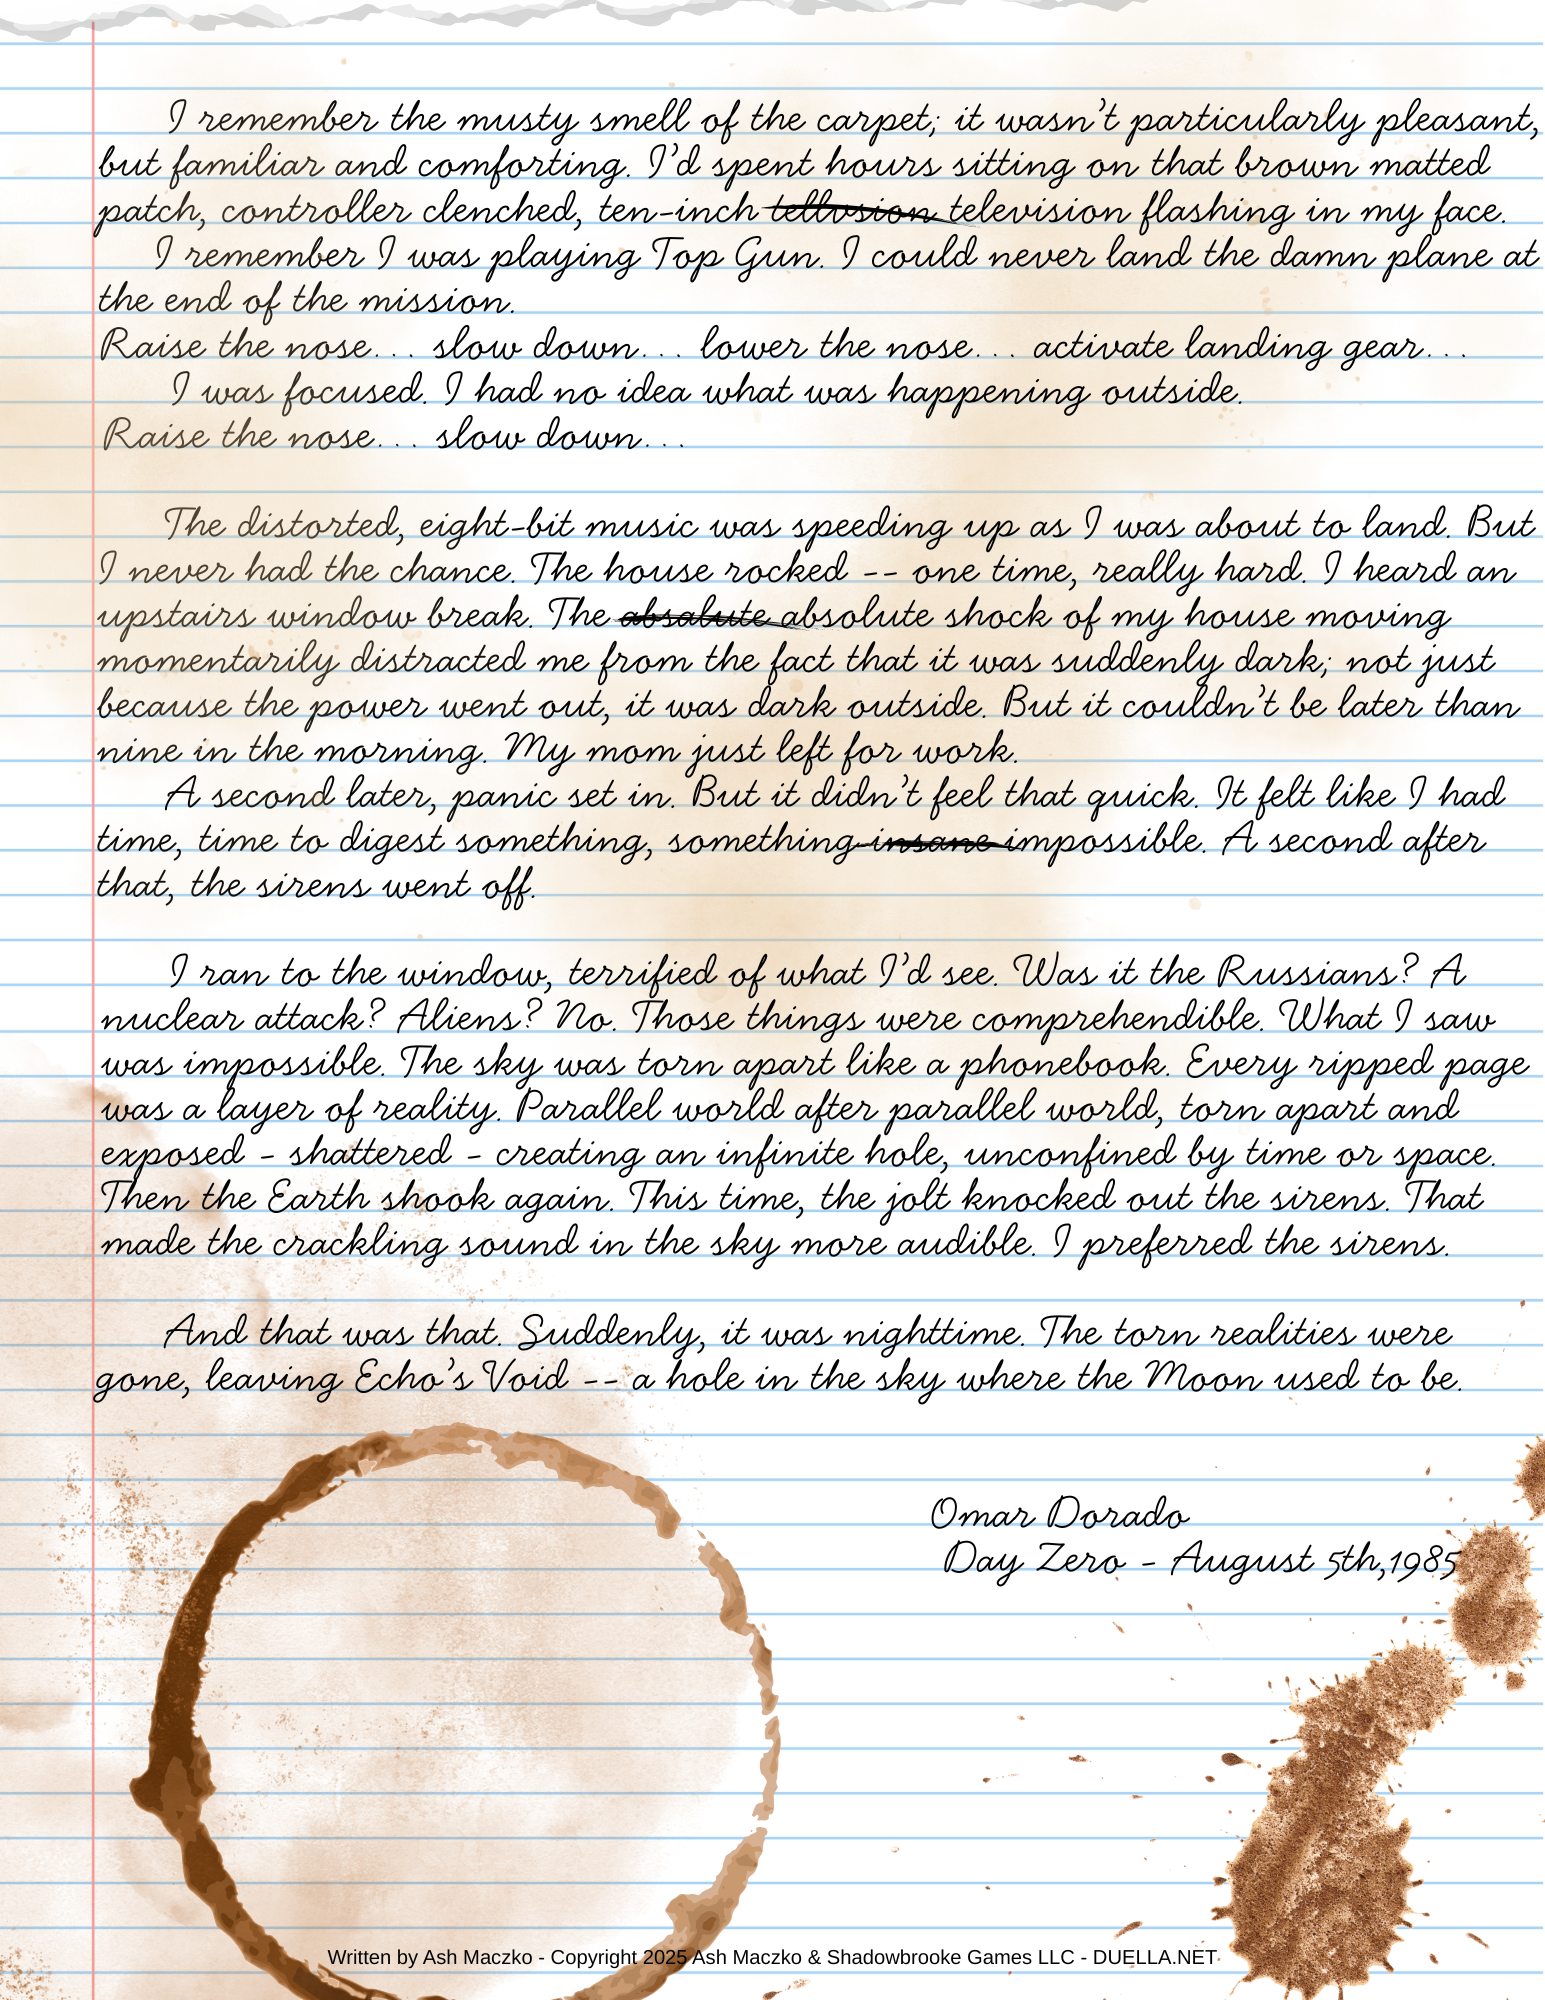 I remember the musty smell of the carpet; it wasn't particularly pleasant,
but familiar and comforting. I'd spent hours sitting on that brown matted
patch, controller clenched, ten-inch tellvsion television flashing in my face.
I remember I was playing Top Gun. I could never land the damn plane at
the end of the mission.
Raise the nose... slow down... lower the nose... activate landing gear...
I was focused. I had no idea what was happening outside.
Raise the nose... slow down...
The distorted, eight-bit music was speeding up as I was about to land. But
I never had the chance. The house rocked -- one time, really hard. I heard an
upstairs window break. The absalute absolute shock of my house moving
momentarily distracted me from the fact that it was suddenly dark; not just
because the power went out, it was dark outside. But it couldn't be later than
nine in the morning. My mom just left for work.
A second later, panic set in. But it didn't feel that quick. It felt like I had
time, time to digest something, something insane impossible. A second after
that, the sirens went off.
I ran to the window, terrified of what I'd see. Was it the Russians? A
nuclear attack? Aliens? No. Those things were comprehendible. What I saw
was impossible. The sky was torn apart like a phonebook. Every ripped page
was a layer of reality. Parallel world after parallel world, torn apart and
exposed - shattered - creating an infinite hole, unconfined by time or space.
Then the Earth shook again. This time, the jolt knocked out the sirens. That
made the crackling sound in the sky more audible. I preferred the sirens.
And that was that. Suddenly, it was nighttime. The torn realities were
gone, leaving Echo's Void -- a hole in the sky where the Moon used to be.
Omar Dorado
Day Zero - August 5th,1985
Written by Ash Maczko - Copyright 2025 Ash Maczko & Shadowbrooke Games LLC - DUELLA.NET